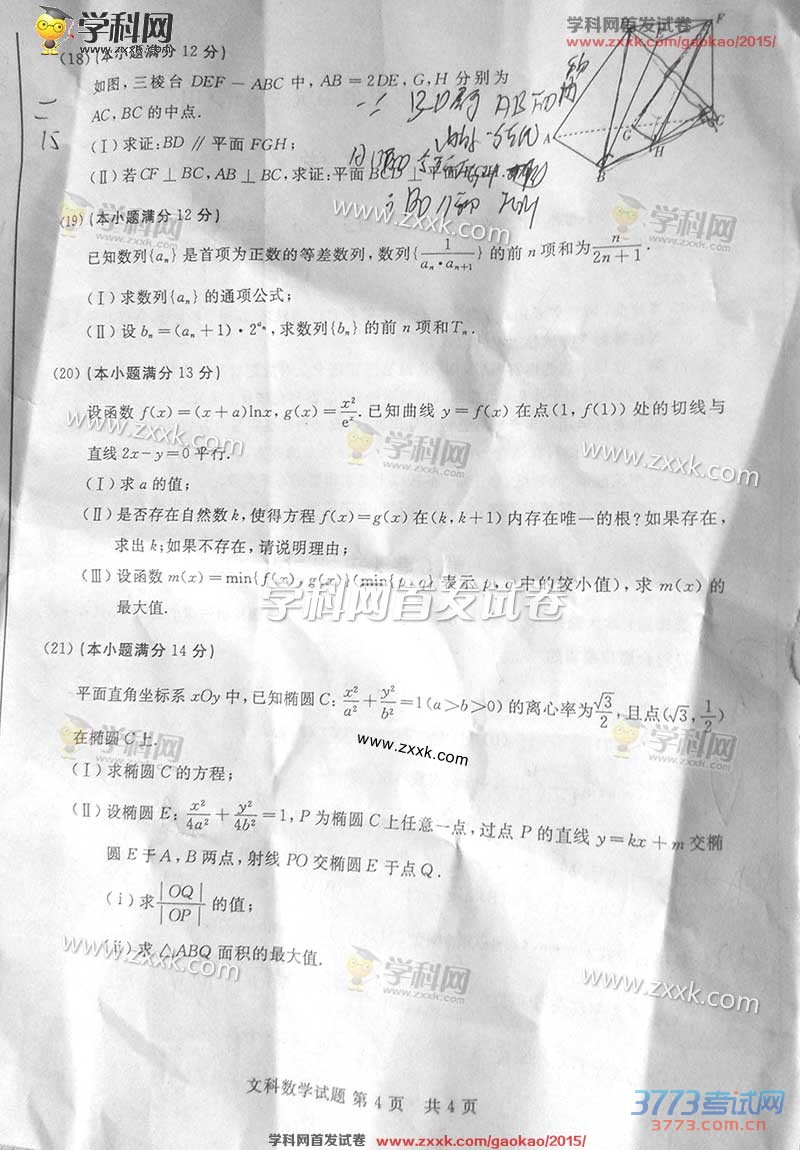 学科网
学科网首发试卷
www.zxxk.com/gaokao/2015/
(18)(本小题满分 12 分)
如图,三棱台 DEF－ABC 中, AB＝2DE, G, H 分别为
AC, BC 的中点.
(Ⅰ)求证:BD∥平面 FGH;
(Ⅱ)若 CF⊥BC, AB⊥BC, 求证:平面 BCD⊥平面
二
15
A
B
C
F
G
H
www.zxxk.com
学科网
(19)(本小题满分 12 分)
已知数列{aₙ}是首项为正数的等差数列,数列{1/(aₙ•aₙ₊₁)}的前 n 项和为 n/(2n+1).
(Ⅰ)求数列{aₙ}的通项公式;
(Ⅱ)设 bₙ=(aₙ+1)•2^aₙ,求数列{bₙ}的前 n 项和Tₙ.
(20)(本小题满分 13 分)
设函数 f(x)=(x+a)lnx, g(x)=x²/eˣ. 已知曲线 y=f(x) 在点(1, f(1)) 处的切线与
直线 2x-y=0 平行.
www.zxxk.com
学科网
www.zxxk.com
(Ⅰ)求 a 的值;
(Ⅱ)是否存在自然数 k,使得方程 f(x)=g(x) 在(k, k+1) 内存在唯一的根?如果存在,
求出 k;如果不存在,请说明理由;
(Ⅲ)设函数 m(x)=min{f(x), g(x)}(min{p,q} 表示 p, q 中的较小值), 求 m(x) 的
最大值.
学科网首发试卷
(21)(本小题满分 14 分)
平面直角坐标系 xOy 中,已知椭圆 C: x²/a²+y²/b²=1(a>b>0) 的离心率为√3/2, 且点(√3, 1/2)
在椭圆 C 上.
学科网
www.zxxk.com
学科网
(Ⅰ)求椭圆 C 的方程;
(Ⅱ)设椭圆 E: x²/4a²+y²/4b²=1, P 为椭圆 C 上任意一点,过点 P 的直线 y=kx+m 交椭
圆 E 于 A, B 两点,射线 PO 交椭圆 E 于点 Q.
(ⅰ)求|OQ|/|OP| 的值;
(ⅱ)求 △ABQ 面积的最大值.
www.zxxk.com
学科网
www.zxxk.com
文科数学试题 第 4 页 共 4 页
3773考试网
3773.com.cn
学科网首发试卷 www.zxxk.com/gaokao/2015/